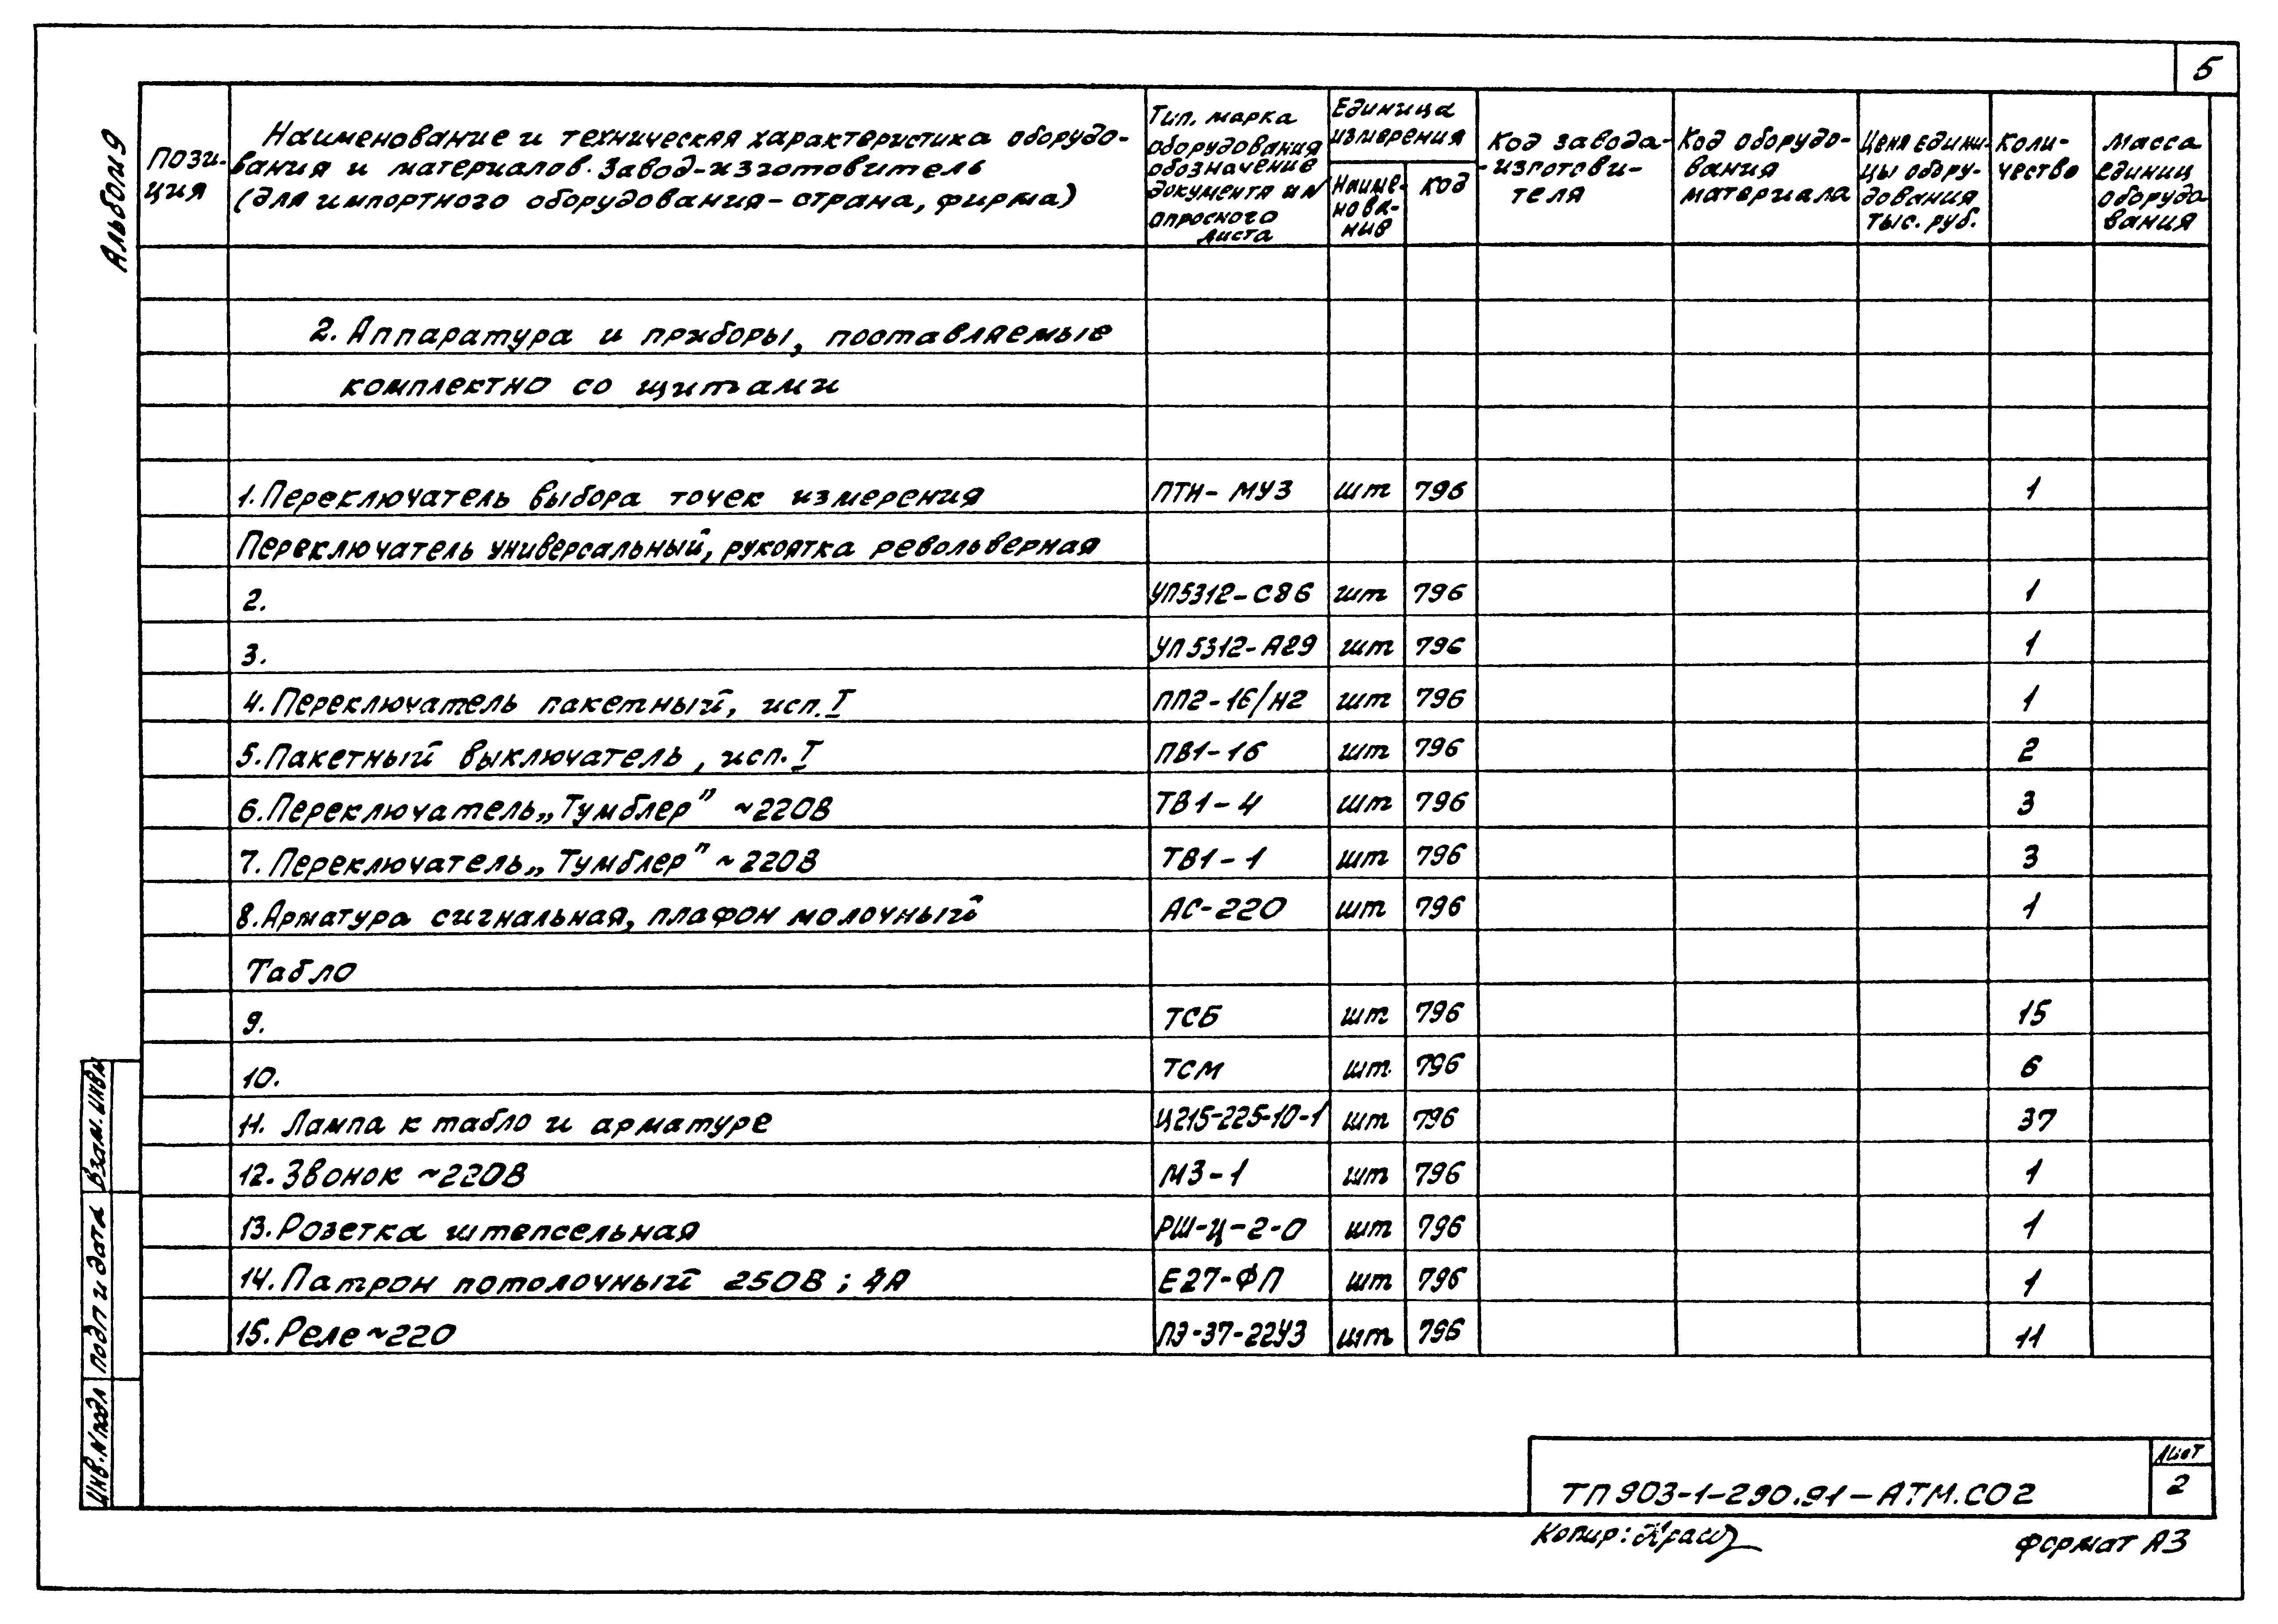 5
Альбом 9
ПОЗИ-
ЦИЯ
Наименование и техническая характеристика оборудо-
вания и материалов. Завод-изготовитель
(для импортного оборудования-страна, фирма)
Тип, марка
оборудования
обозначение
документа и №
опросного
листа
Единица
измерения
Наиме-
нова-
ние
КОД
Код завода-
-изготови-
теля
Код оборудо-
вания
материала
Цена едини-
цы обору-
дования
тыс. руб.
Коли-
чество
Масса
единиц
оборудо
вания
2. Аппаратура и приборы, поставляемые
комплектно со щитами
1. Переключатель выбора точек измерения ПТИ-МУ3 шт 796 1
Переключатель универсальный, рукоятка револьверная
2. УП5312-С86 шт 796 1
3. УП5312-А29 шт 796 1
4. Переключатель пакетный, исп. I ПП2-16/Н2 шт 796 1
5. Пакетный выключатель, исп. I ПВ1-16 шт 796 2
6. Переключатель „Тумблер" ~220В ТВ1-4 шт 796 3
7. Переключатель „Тумблер" ~220В ТВ1-1 шт 796 3
8. Арматура сигнальная, плафон молочный АС-220 шт 796 1
Табло
9. ТСБ шт 796 15
10. ТСМ шт. 796 6
11. Лампа к табло и арматуре Ц215-225-10-1 шт 796 37
12. Звонок ~220В МЗ-1 шт 796 1
13. Розетка штепсельная РШ-Ц-2-0 шт 796 1
14. Патрон потолочный 250В; 4А Е27-ФП шт 796 1
15. Реле ~220 ПЭ-37-22У3 шт 796 11
Взам. инв №
Подп и дата
Инв. N подл
ТП 903-1-290.91-АТМ.СО2
Лист
2
Копир:
Формат А3